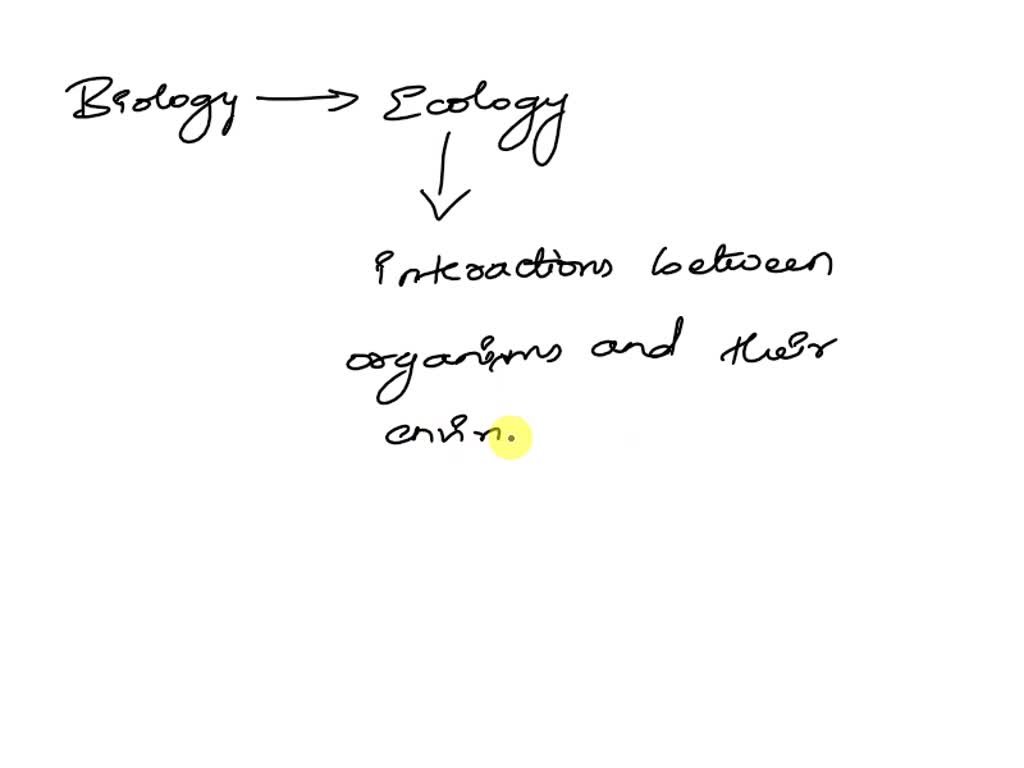 Biology → Ecology
↓
interactions between
organisms and their
envirn.